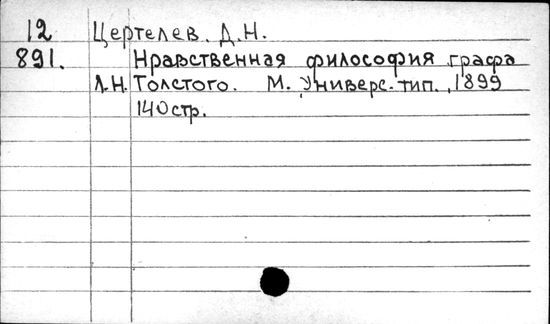 12 Цертелев. Д.Н.
891. Нравственная философия графа
Л.Н. Толстого. М. Универс. тип., 1899
140стр.